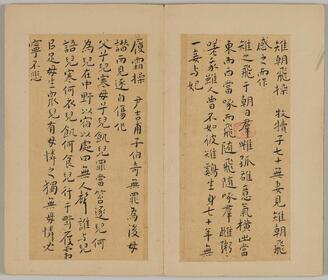 雉朝飛操 牧犢子七十無妻見雉朝飛
感之而作
雉之飛于朝日羣雌孤雄意氣橫出當
東而西當啄而飛隨飛隨啄羣雌粥粥
嗟我雖人曾不如彼雉雞生身七十年無
一妾与妃
履霜操 尹吉甫子伯奇無罪為後母
譖而見逐自傷作
父兮兒寒母兮兒飢兒罪當笞逐兒何
為兒在中野以宿以處四無人聲誰与兒
語兒寒何衣兒飢何食兒行于野履霜
以足母生衆兒有母憐之獨無母憐兒
寧不悲